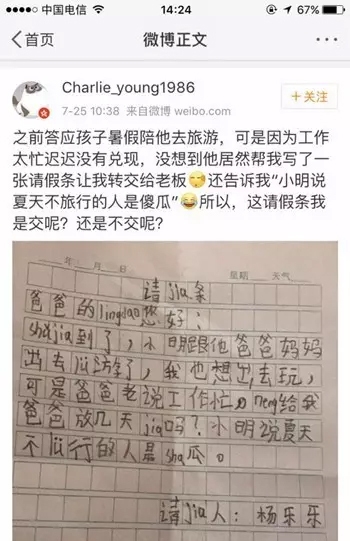 中国电信 14:24 67%
首页 微博正文
Charlie_young1986
7-25 10:38 来自微博 weibo.com
+关注
之前答应孩子暑假陪他去旅游，可是因为工作
太忙迟迟没有兑现，没想到他居然帮我写了一
张请假条让我转交给老板😚还告诉我“小明说
夏天不旅行的人是傻瓜”😂所以，这请假条我
是交呢？还是不交呢？
年 月 日 星期 天气
请jia条
爸爸的lingdao您好：
shǔjia到了，小明跟他爸爸妈妈
出去lǚ
了，我也想出去玩，
可是爸爸老说工作忙。neng给我
爸爸放几天jia吗？小明说夏天
不lǚ行的人是sha瓜。
请jia人：杨乐乐